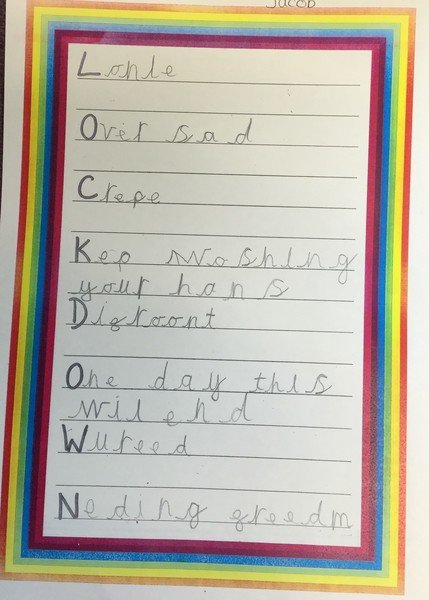 Jacob
Lonle
Over sad
Crepe
Kep woshing
your hans
Difroont
One day this
wil end
Wureed
Neding freedm